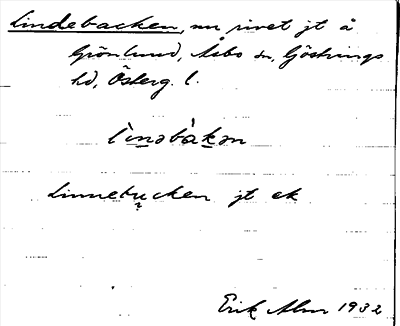 Lindebacken, nu rivet jt å
Grönlund, Åsbo sn, Göstrings
hd, Österg. l.
lìnəbàkən
Linnebucken jt ek
Erik Alm 1932